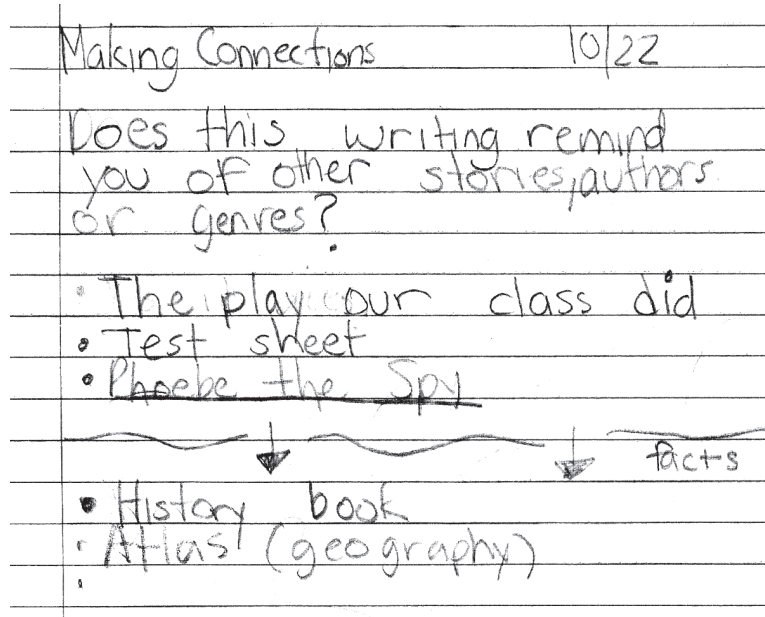 Making Connections 10/22
Does this writing remind
you of other stories, authors
or genres?
• The play our class did
• Test sheet
• Phoebe the Spy
facts
• History book
• Atlas (geography)
•